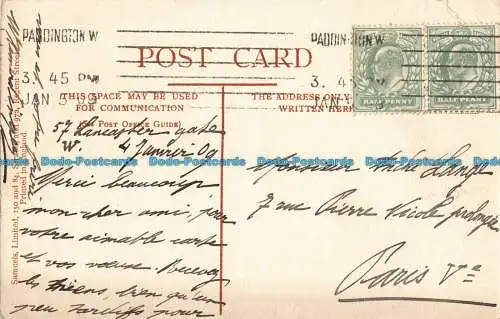 PADDINGTON W
3. 45 PM
JAN 5
PADDINGTON W
3. 45
JAN
POST CARD
THIS SPACE MAY BE USED
FOR COMMUNICATION
(SEE POST OFFICE GUIDE)
THE ADDRESS ONLY
WRITTEN HERE
HALF PENNY
HALF PENNY
57 Lancaster gate
W. 4 Janvier 09
Merci beaucoup
mon cher ami, pour
votre aimable carte
et vos voeux. Recevez
les miens, bien qu'un
peu tardifs pour
Monsieur André Lange
7 rue Pierre Nicole prolongée
Paris Ve
Samuels, Limited,
Printed in
Dodo-Postcards Dodo-Postcards Dodo-Postcards Dodo-Postcards Dodo-Postcards